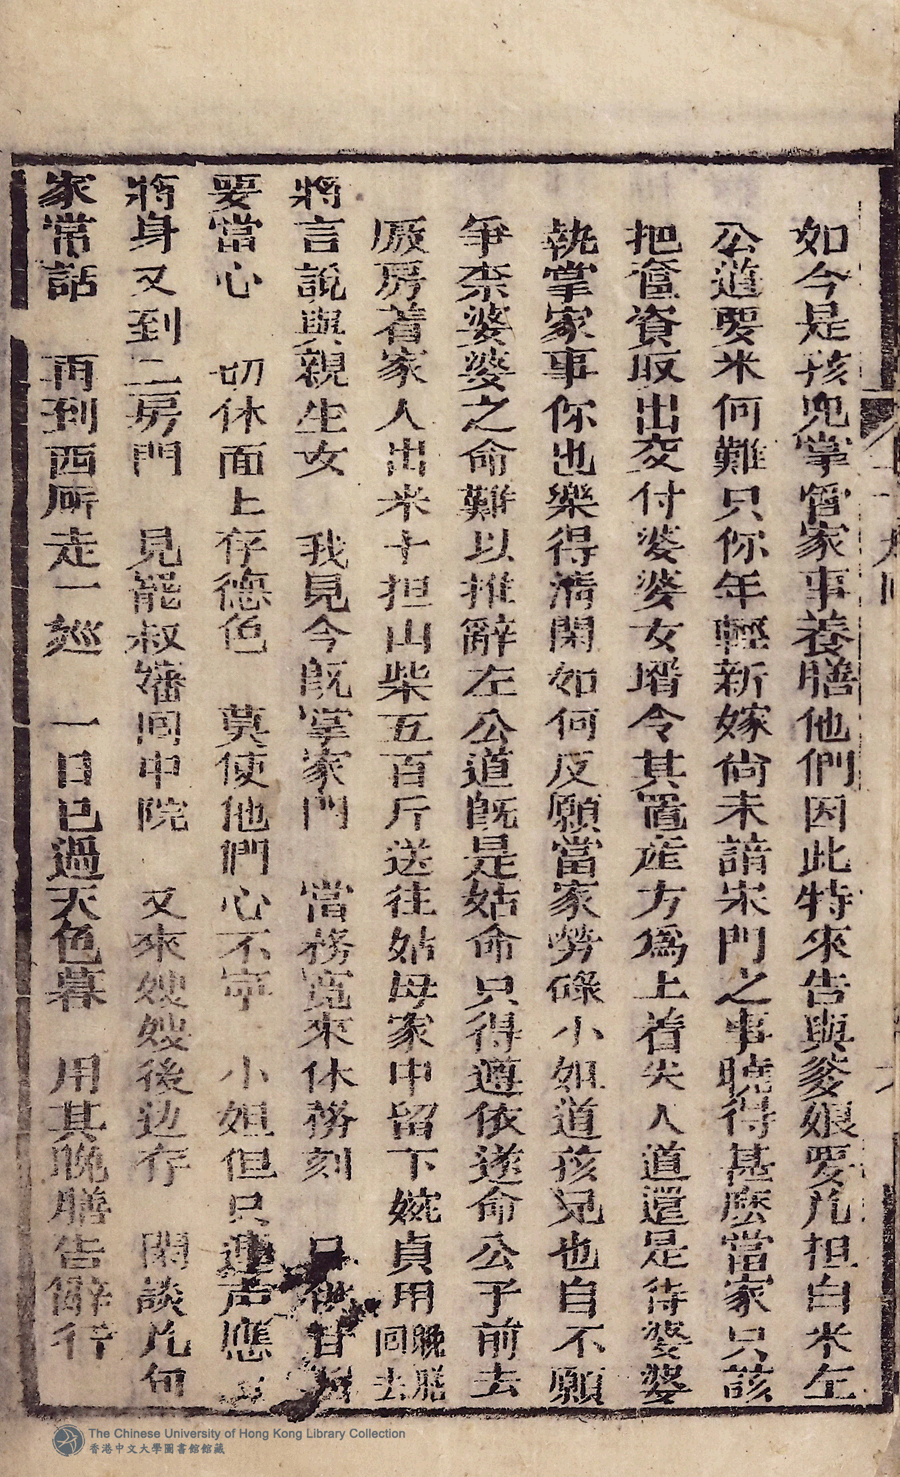 如今是孩兒掌管家事養膳他們因此特來告與爹娘要几担白米左
公道要米何難只你年輕新嫁尙未諳宋門之事曉得甚麽當家只該
把奩資取出交付婆婆女壻令其置産方爲上着夫人道還是待婆婆
執掌家事你也樂得清閑如何反願當家勞碌小姐道孩兒也自不願
爭柰婆婆之命難以推辭左公道旣是姑命只得遵依遂命公子前去
厫房着家人出米十担山柴五百斤送往姑母家中留下婉貞用晚膳回去
將言說與親生女　我見今旣掌家門　當務寬來休務刻
要當心　切休面上存德色　莫使他們心不寧　小姐但只連声應
將身又到二房門　見罷叔嬸回中院　又來嫂嫂後边存　閑談几句
家常話　再到西厢走一巡　一日已過天色暮　用其晚膳告辭行
The Chinese University of Hong Kong Library Collection
香港中文大學圖書館館藏